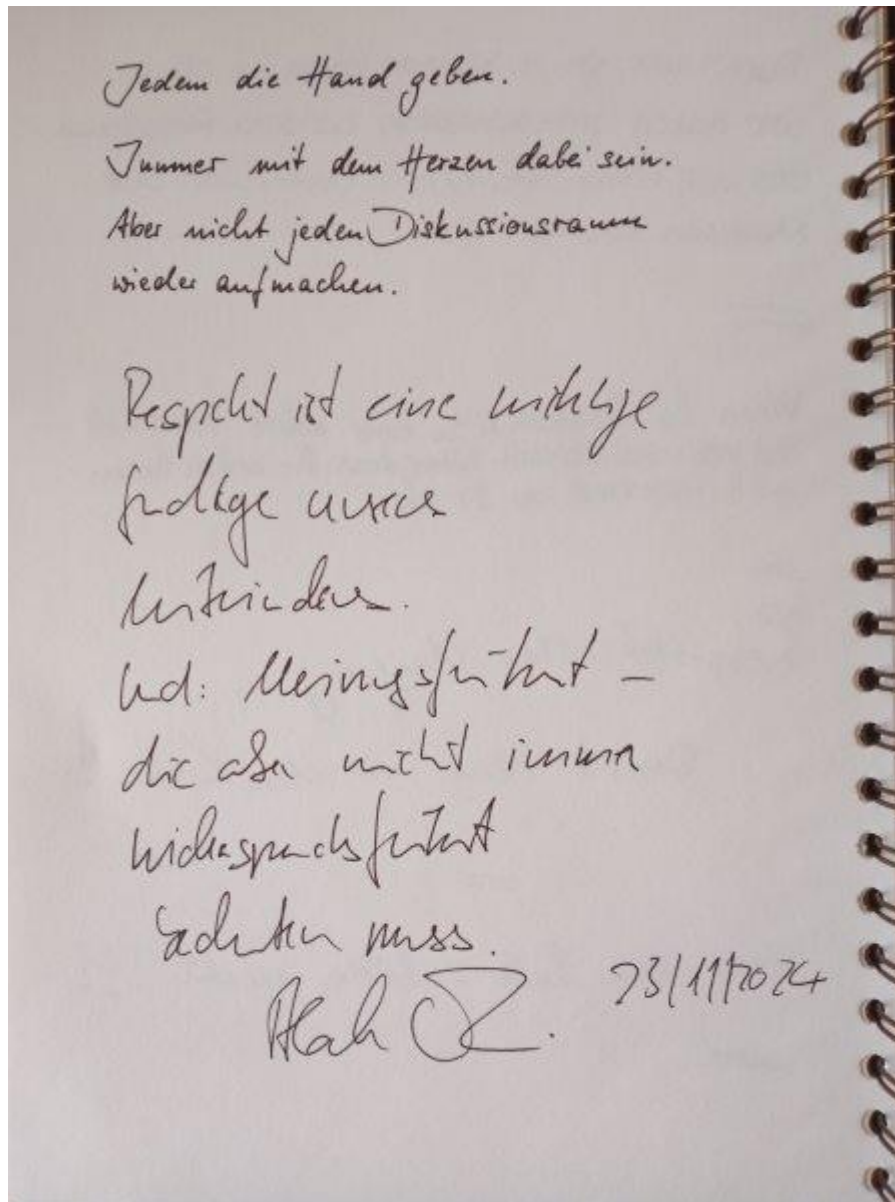 Jedem die Hand geben.
Immer mit dem Herzen dabei sein.
Aber nicht jeden Diskussionsraum
wieder aufmachen.
Respekt ist eine wichtige
Grundlage unseres
Miteinanders.
Und: Meinungsfreiheit –
die aber nicht immer
widerspruchsfreiheit
bedeuten muss.
23/11/2024